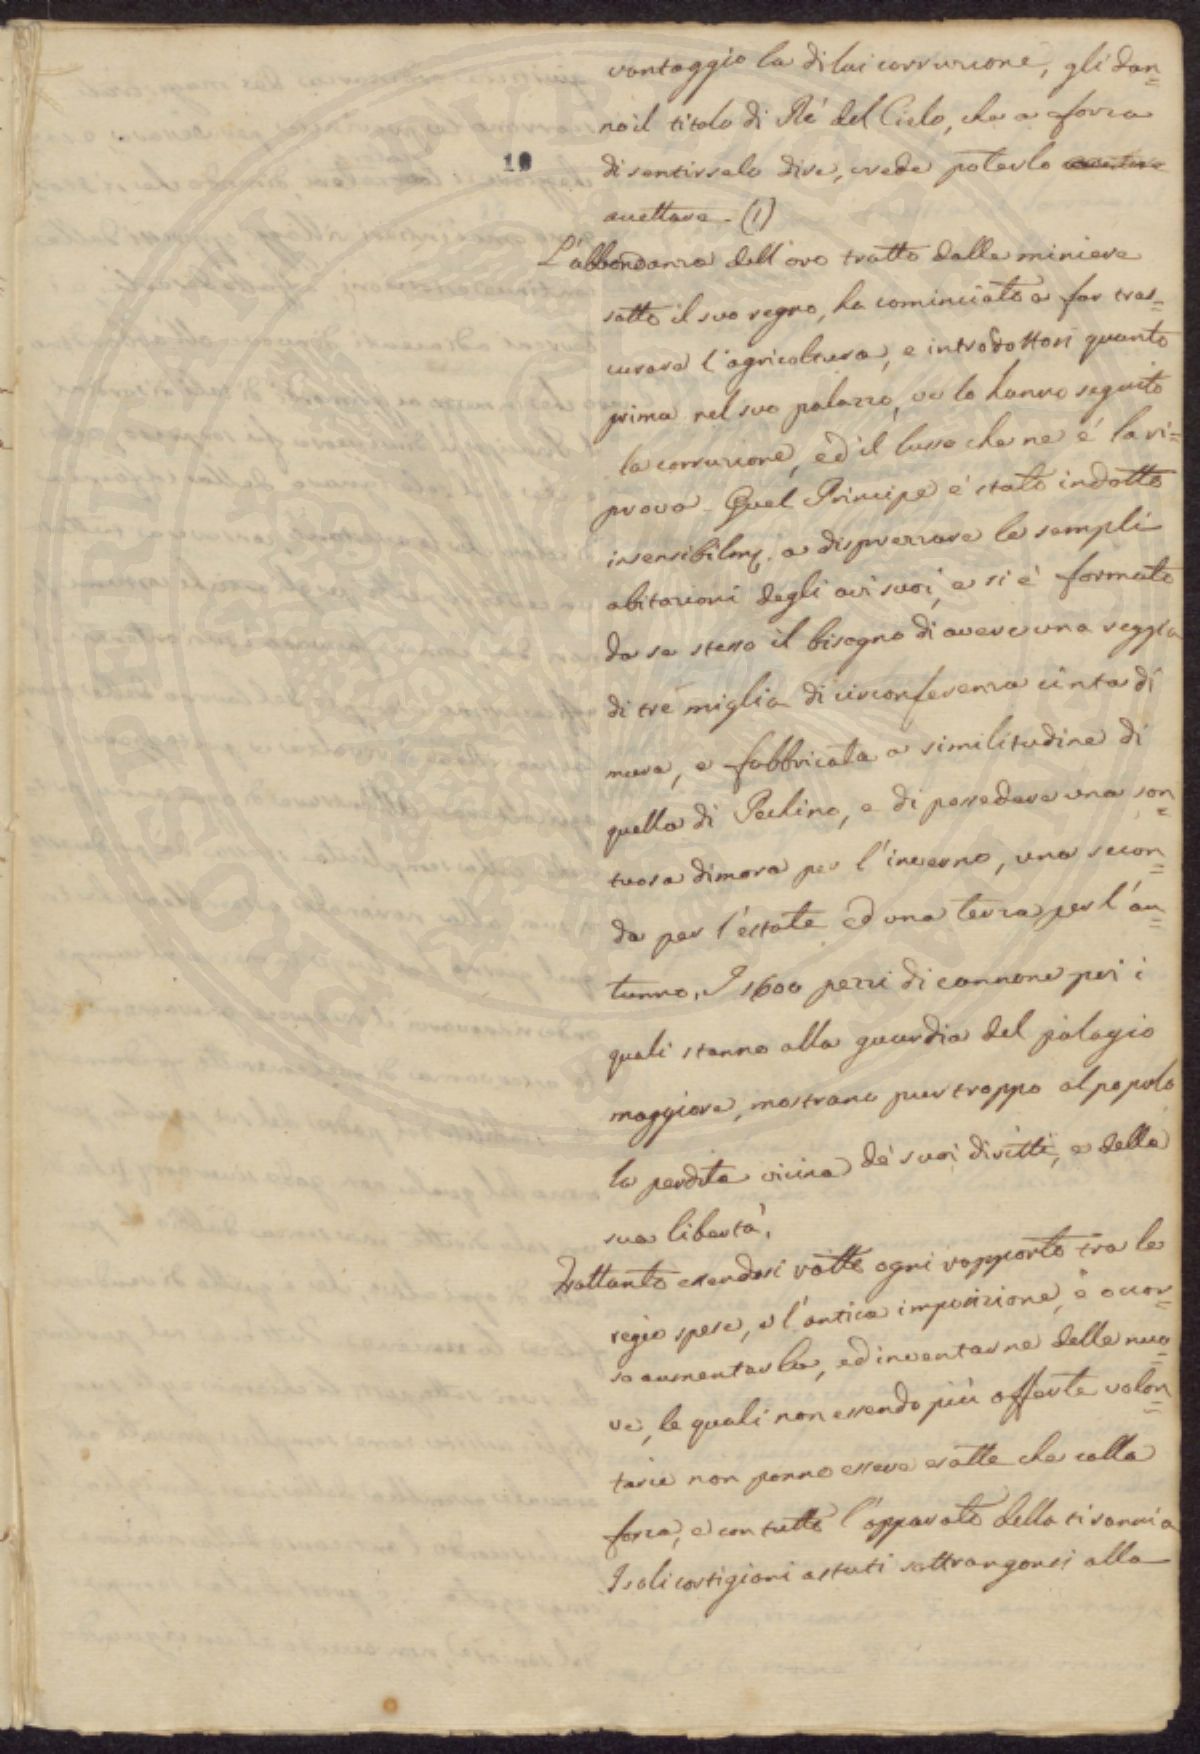 vantaggio la di lui corruzione, gli dan=
no il titolo di Rè del Cielo, che a forza
10
di sentirselo dire, crede poterlo
accettare. (1)
L'abbondanza dell'oro tratto dalle miniere
sotto il suo regno, ha cominciato a far tras=
curare l'agricoltura, e introdottosi quanto
prima nel suo palazzo, ve lo hanno seguito
la corruzione, ed il lusso che ne é la ri=
prova. Quel Principe é stato indotto
insensibilmٖe. a disprezzare le sempli
abitazioni degli avi suoi, e si é formato
da se stesso il bisogno di avere una reggia
di tre miglia di circonferenza cinta di
mura, e fabbricata a similitudine di
quella di Pechino, e di possedere una son=
tuosa dimora per l'inverno, una secon=
da per l'estate ed una terza per l'au=
tunno. I 1600 pezzi di cannone poi i
quali stanno alla guardia del palagio
maggiore, mostrano pur troppo al popolo
la perdita vicina de' suoi diritti, e della
sua libertà.
Frattanto essendosi rotto ogni rapporto tra le
regie spese, e l'antica imposizione, è occor=
so aumentarla, ed inventarne delle nuo=
ve, le quali non essendo più offerte volon=
tarie non ponno essere esatte che colla
forza, e con tutto l'apparato della tirannia
I soli cortigiani astuti sottrangonsi alla